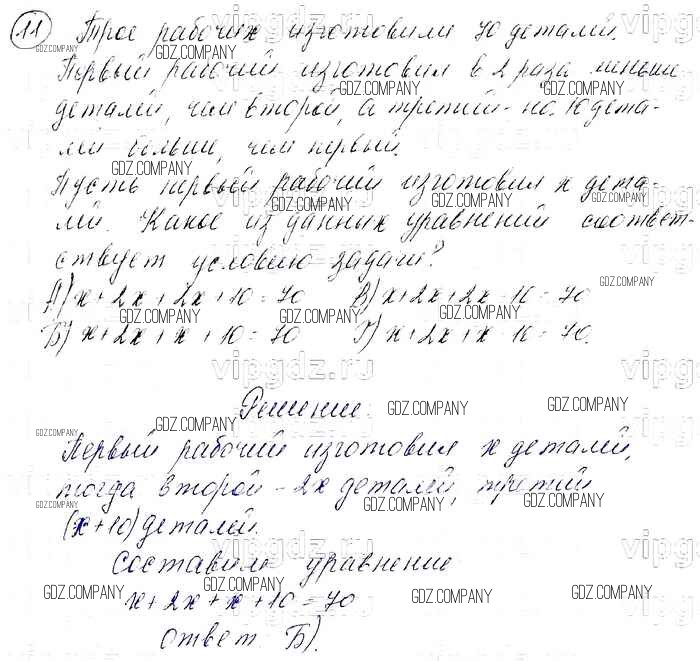 11 Трое рабочих изготовили 70 деталей.
Первый рабочий изготовил в 2 раза меньше
деталей, чем второй, а третий - на 10 дета-
лей больше, чем первый.
Пусть первый рабочий изготовил x дета-
лей. Какое из данных уравнений соответ-
ствует условию задачи?
А) x + 2x + 2x + 10 = 70 В) x + 2x + 2x - 10 = 70
Б) x + 2x + x + 10 = 70 Г) x + 2x + x - 10 = 70.
Решение.
Первый рабочий изготовил x деталей,
тогда второй - 2x деталей, третий
(x + 10) деталей.
Составим уравнение
x + 2x + x + 10 = 70
Ответ Б).
GDZ.COMPANY
vipgdz.ru